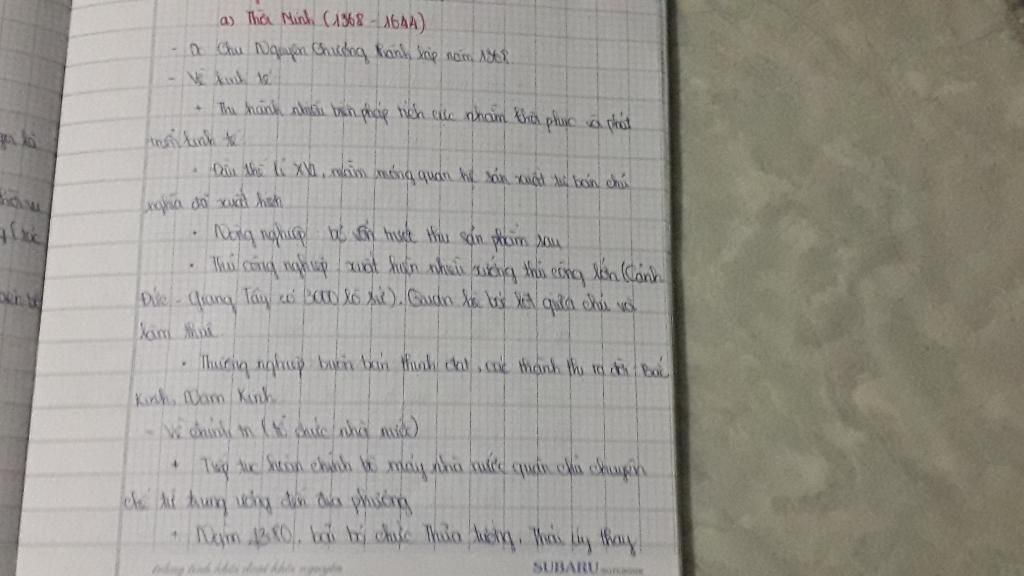 a) Thời Minh (1368 - 1644)
- Do Chu Nguyên Chương thành lập năm 1368
- Về kinh tế
+ Thi hành nhiều biện pháp tích cực nhằm khôi phục và phát
triển kinh tế
• Đầu thế kỉ XVI, mầm móng quan hệ sản xuất tư bản chủ
nghĩa đã xuất hiện
• Nông nghiệp: bỏ vốn trước thu sản phẩm sau
• Thủ công nghiệp: xuất hiện nhiều xưởng thủ công lớn (Cảnh
Đức - Giang Tây có 3000 lò sứ). Quan hệ giữa chủ với
làm thuê
• Thương nghiệp: buôn bán thịnh đạt, các thành thị ra đời: Bắc
Kinh, Nam Kinh
- Về chính trị (tổ chức nhà nước)
+ Tiếp tục hoàn chỉnh bộ máy nhà nước quân chủ chuyên
chế từ trung ương đến địa phương
+ Năm 1380, bãi bỏ chức Thừa tướng, Thái úy thay
trắng tinh khôi đoạt khôi nguyên
SUBARU